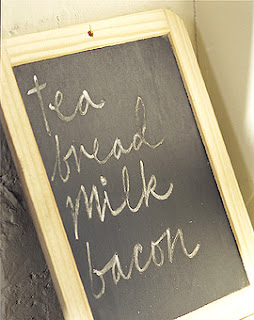 tea
bread
milk
bacon